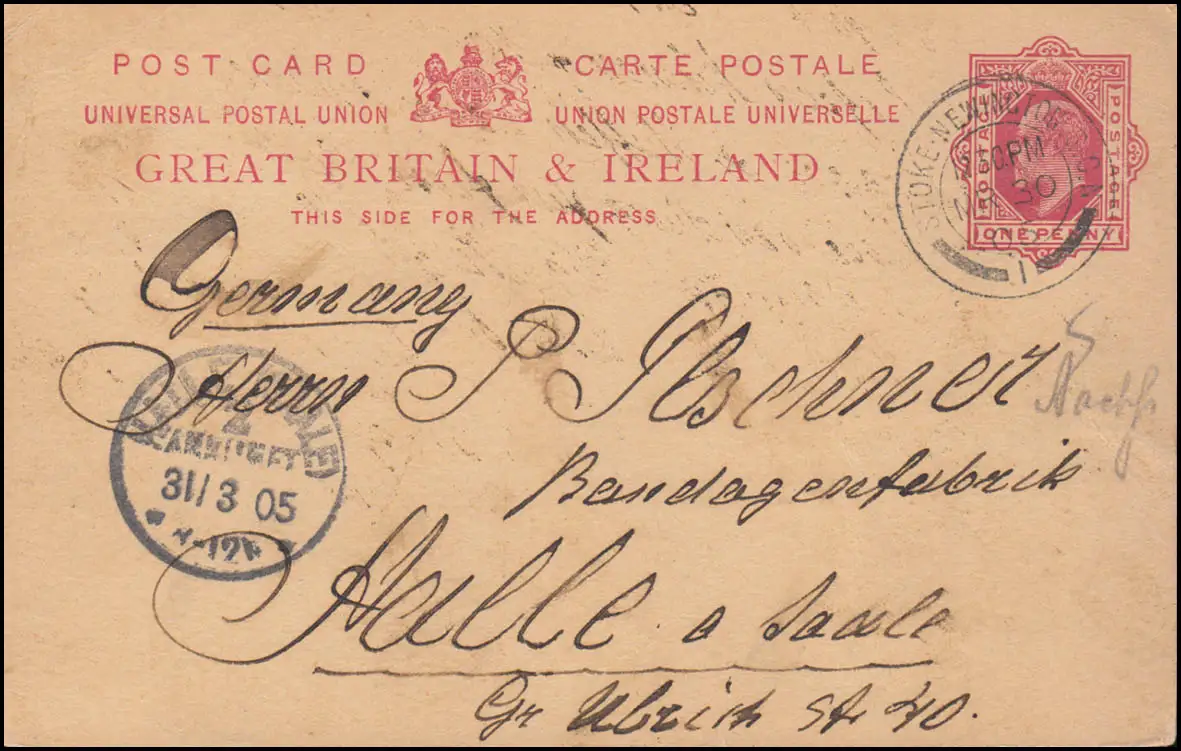 POST CARD CARTE POSTALE
UNIVERSAL POSTAL UNION UNION POSTALE UNIVERSELLE
GREAT BRITAIN & IRELAND
THIS SIDE FOR THE ADDRESS
POSTAGE POSTAGE
ONE PENNY
STOKE-NEWINGTON
2.30PM
MR 30
05
1
Germany
Herrn P
Bandagenfabrik
Halle a Saale
Gr Ulrich St. 40.
HALLE (SAALE)
2
31/3 05
-12